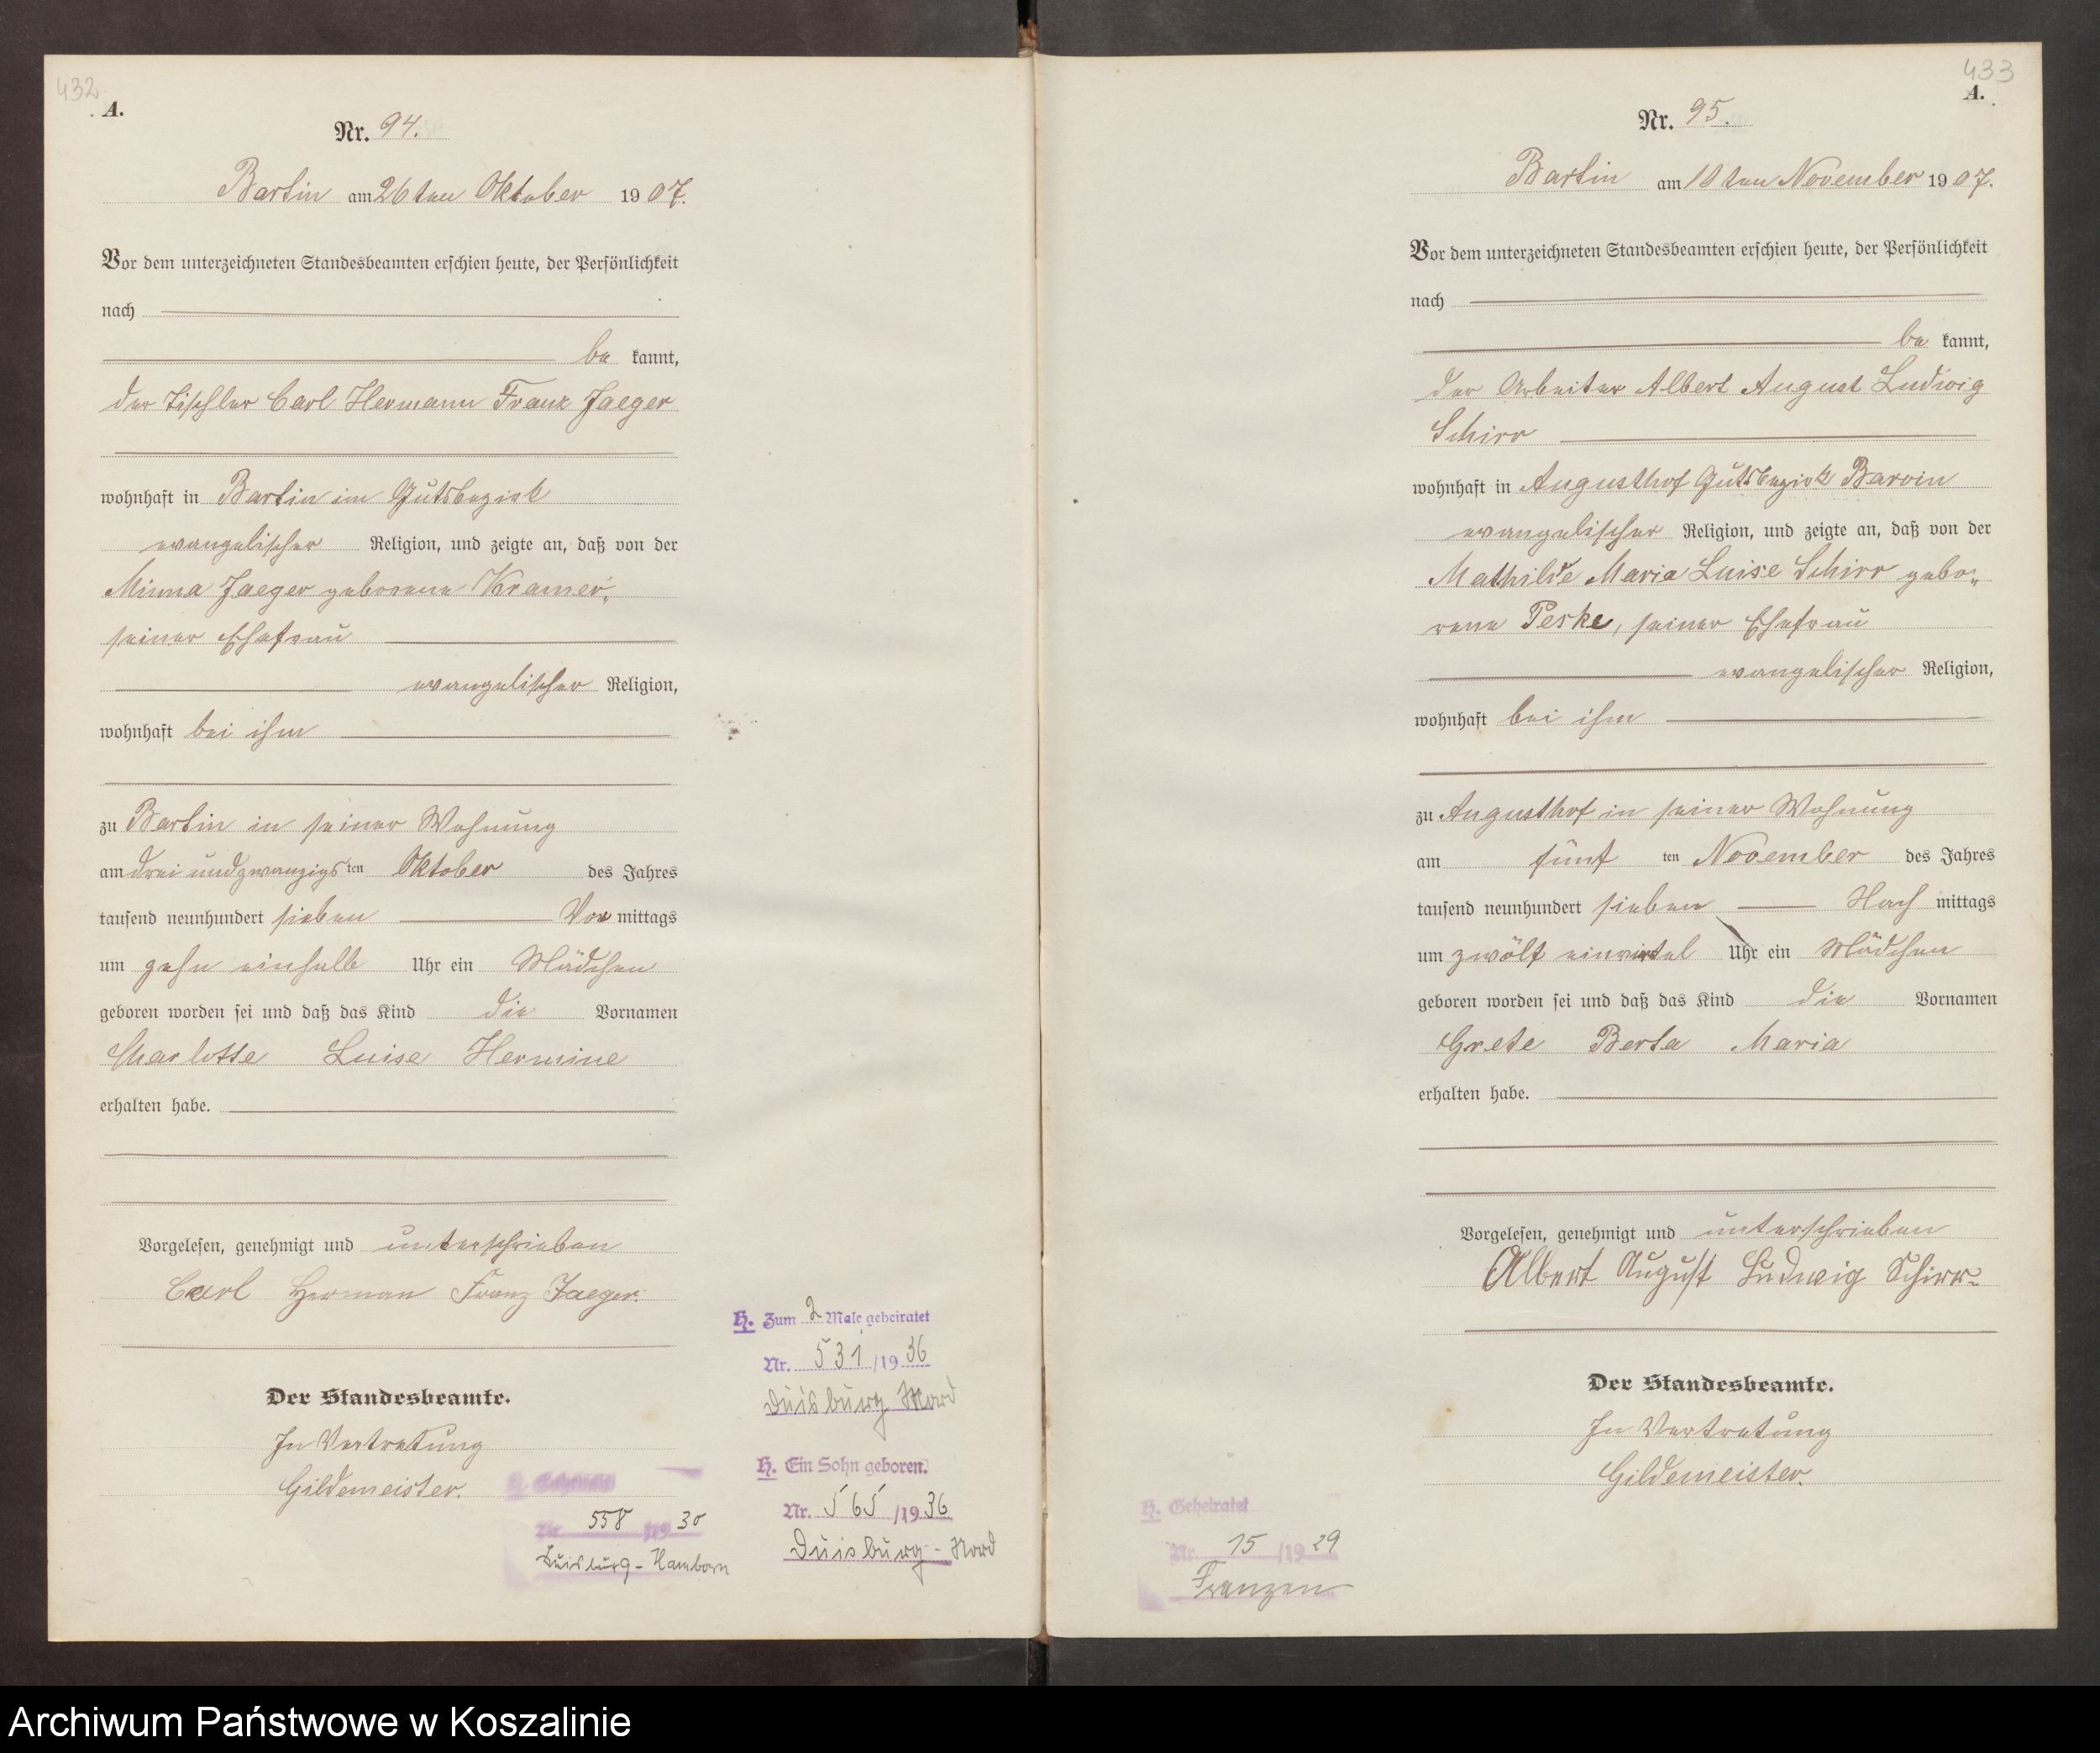 432
A.
Nr. 94.
Bartin am 26ten Oktober 1907.
Vor dem unterzeichneten Standesbeamten erschien heute, der Persönlichkeit
nach
be kannt,
der Tischler Carl Hermann Franz Jaeger
wohnhaft in Bartin im Gutsbezirk
evangelischer Religion, und zeigte an, daß von der
Minna Jaeger geborene Kramer,
seiner Ehefrau
evangelischer Religion,
wohnhaft bei ihm
zu Bartin in seiner Wohnung
am drei und zwanzigsten Oktober des Jahres
tausend neunhundert sieben Vor mittags
um zehn einhalb Uhr ein Mädchen
geboren worden sei und daß das Kind die Vornamen
Charlotte Luise Hermine
erhalten habe.
Vorgelesen, genehmigt und unterschrieben
Carl Herman Franz Jaeger.
Der Standesbeamte.
In Vertretung
Gildemeister.
Nr. 558 /1930
Duisburg-Hamborn
H. Zum 2 Male geheiratet
Nr. 531 /1936
Duisburg Nord
H. Ein Sohn geboren.
Nr. 565 /1936
Duisburg-Nord
433
A.
Nr. 95.
Bartin am 10ten November 1907.
Vor dem unterzeichneten Standesbeamten erschien heute, der Persönlichkeit
nach
be kannt,
der Arbeiter Albert August Ludwig
Schirr
wohnhaft in Augusthof Gutsbezirk Barvin
evangelischer Religion, und zeigte an, daß von der
Mathilde Maria Luise Schirr gebo„
rene Peske, seiner Ehefrau
evangelischer Religion,
wohnhaft bei ihm
zu Augusthof in seiner Wohnung
am fünf ten November des Jahres
tausend neunhundert sieben Nach mittags
um zwölf einviertel Uhr ein Mädchen
geboren worden sei und daß das Kind die Vornamen
Grete Berta Maria
erhalten habe.
Vorgelesen, genehmigt und unterschrieben
Albert August Ludwig Schirr.
Der Standesbeamte.
In Vertretung
Gildemeister.
H. Geheiratet
Nr. 15 /1929
Franzen
Archiwum Państwowe w Koszalinie